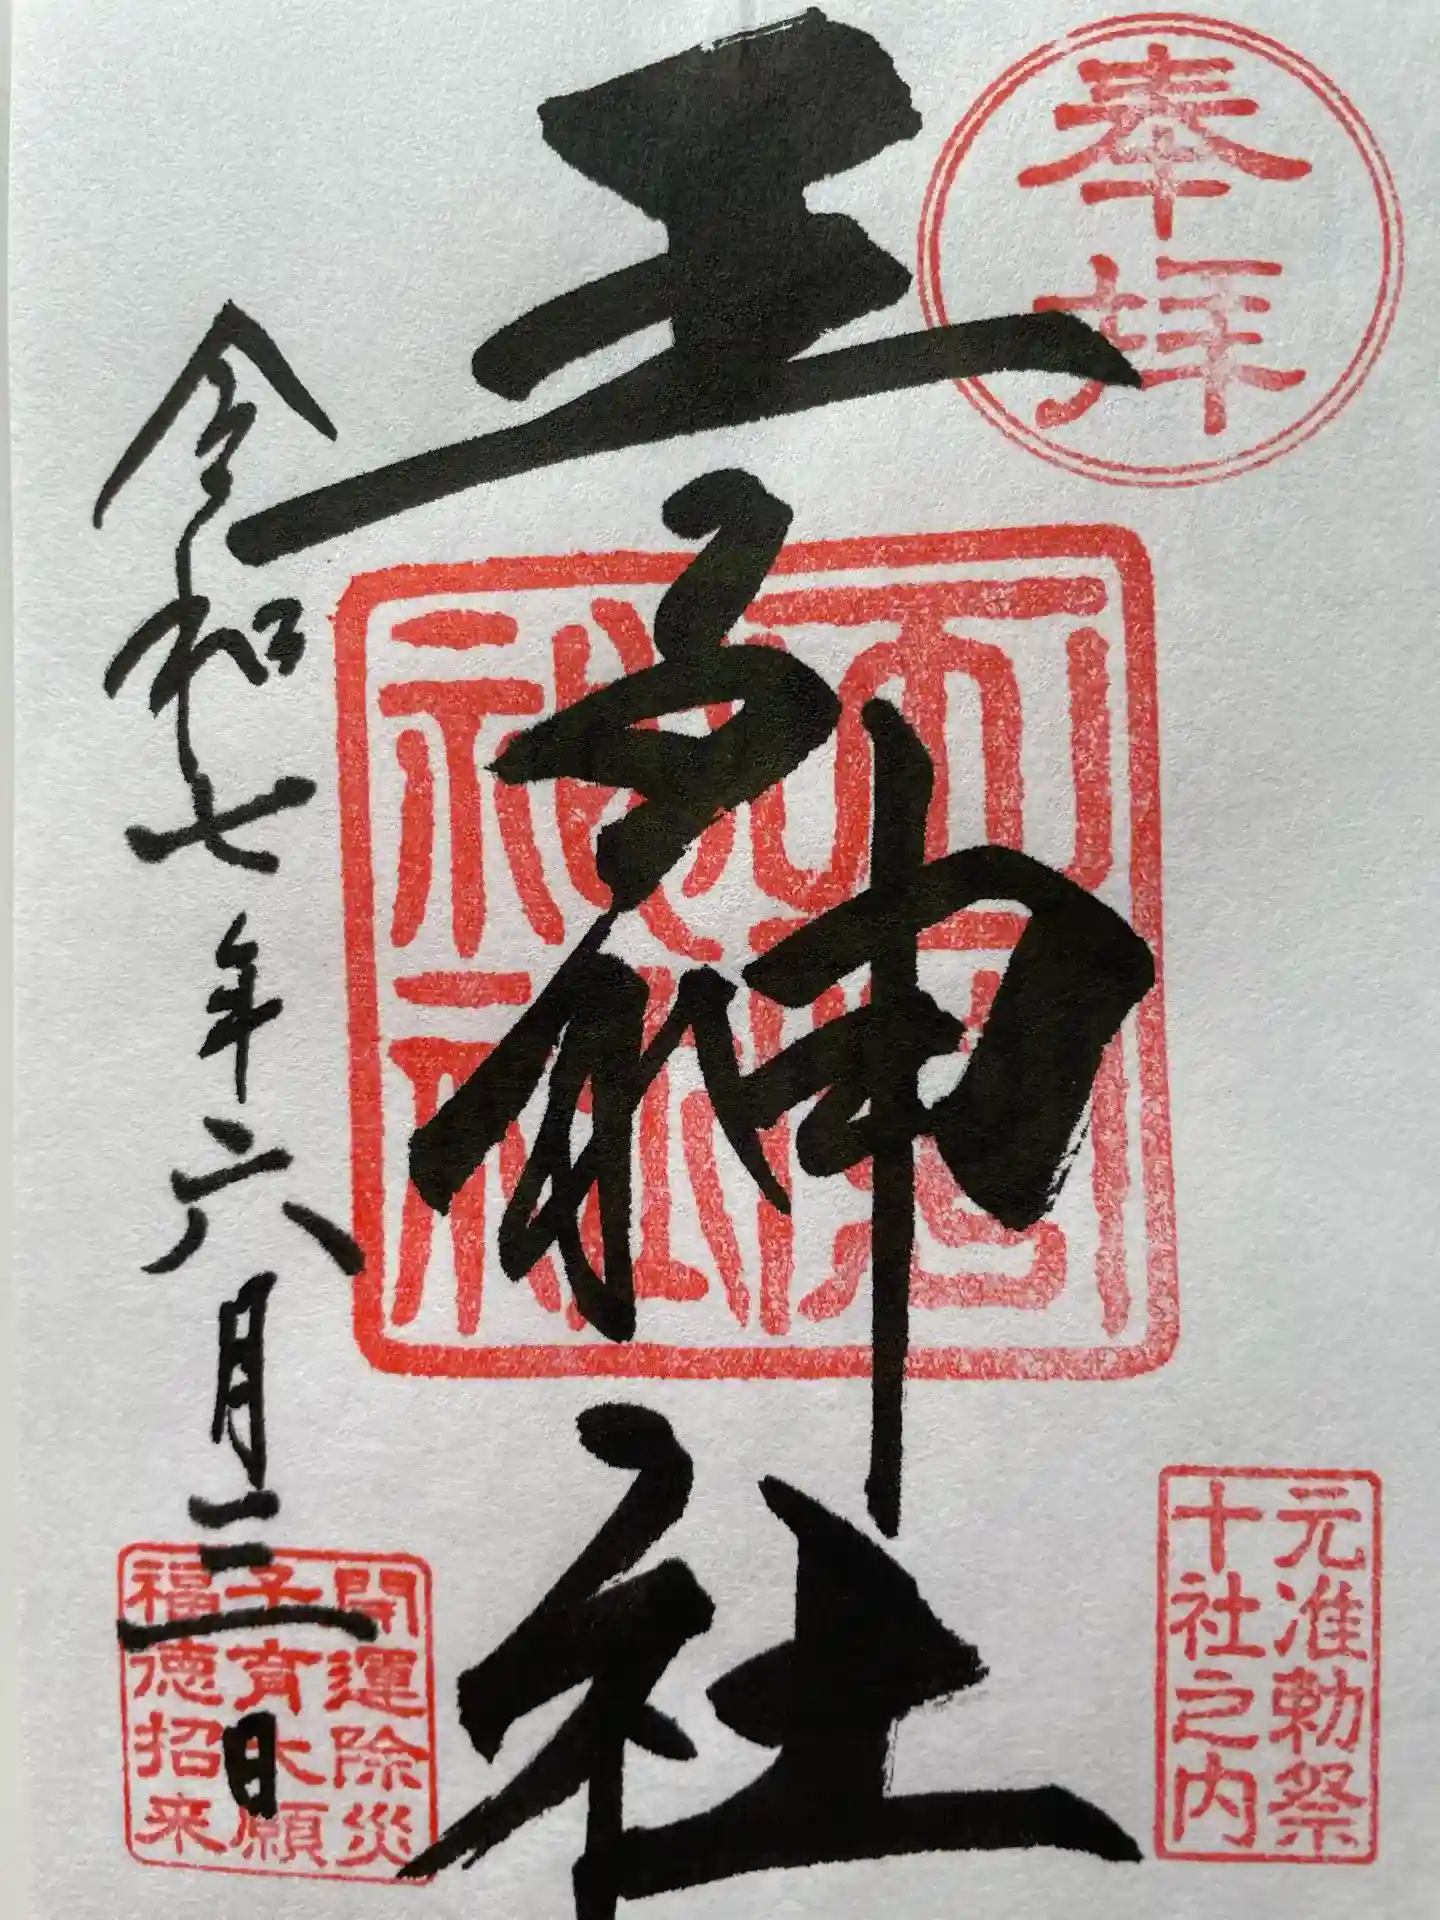 奉拝
元准勅祭
十社之内
王子神社
令和七年六月三日
開運除災
子育大願
福徳招来